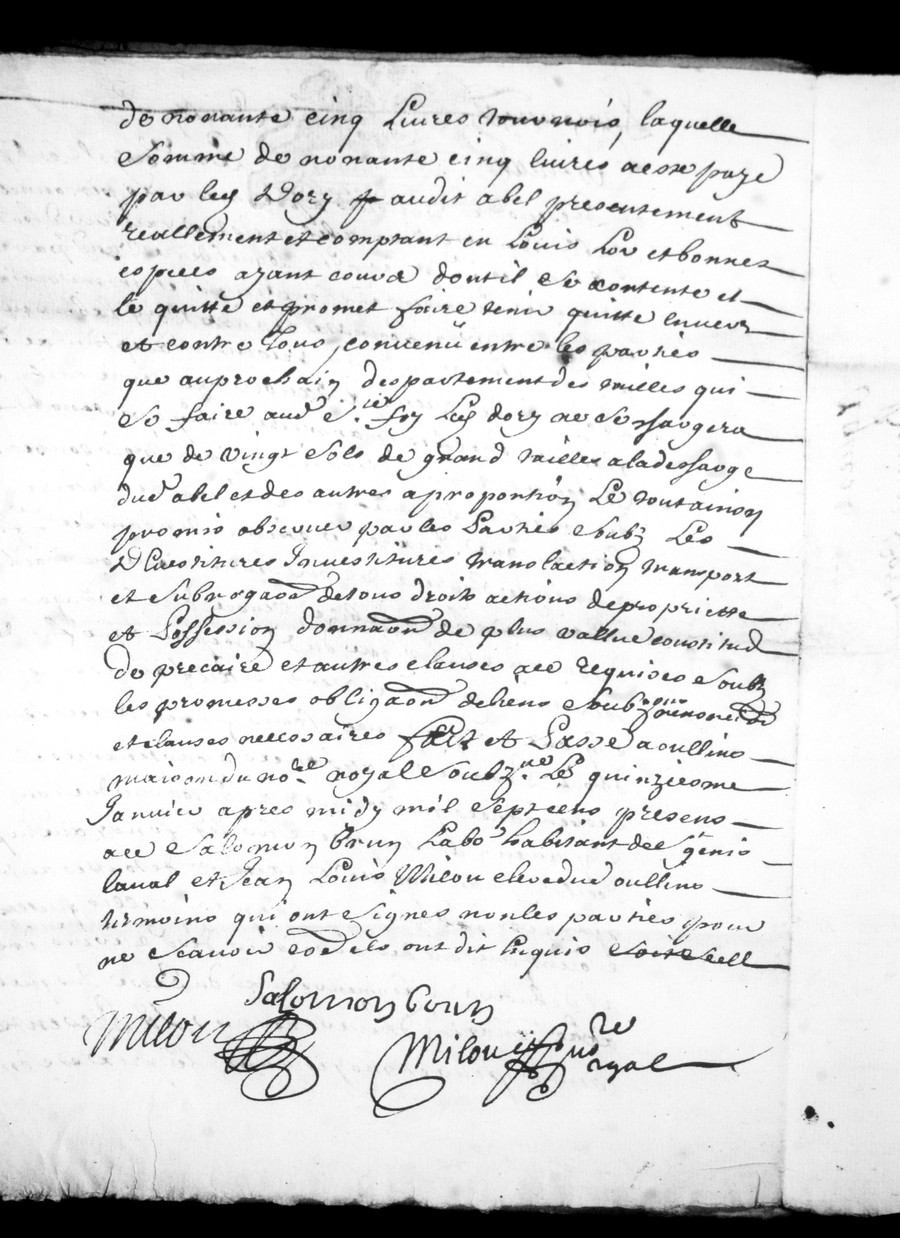 de nonante cinq Livres tournois, laquelle
somme de nonante cinq livres a esté payé
par led Dory audit abel presentement
reallement et comptant en Louis Lor et bonnes
especes ayant cours dontil se contente et
le quitte et promet faire tenir quitte envers
et contre Tous, convenû entre les parties
que auprochain despartement des tailles qui
se faire aud S.t foy Led dory ne se chargera
que de vingt sols de grand tailles aladescharge
dud abel et des autres a proportion Le tout ainsy
promis observer par les Parties soubz Les
D'Investitures Investitures translaction transport
et subrogaon detous droits actions depropriette
et Possession donnaon de plus vallue constitud
de precaire et autres clauses ace requises soubz
les promesses obligaon debiens soubz
et clauses necessaires fait et Passé aoullins
maison du no.re royal soubz.né Le quinzieme
Janvier apres midy mil sept cens presens
ace Salomon brun Labo.r habitant de S.t genis
laval et Jean Louis Milou dud oullins
tesmoins qui ont signes non les parties pour
ne scavoir co ils ont dit Enquis
Salomon brun
milou
Milou no.re
royal